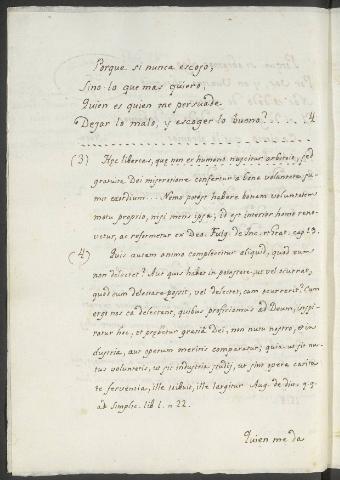 Porque si nunca escojo,
Sino lo que mas quiero,
Quien es quien me persuade
Degar lo malo, y escoger lo bueno? 4
(3) Hęc libertas, que non ex humano nascitur arbitrio, sed
gratuita Dei miseratione confertur a bona voluntate su-
mit exordium... Nemo potest habere bonam voluntatem
motu proprio, nisi mens ipsa, id est interior homo reno-
vetur, ac reformetur ex Deo. Fulg. de Inc. et Grat. cap. 13.
(4) Quis autem animo complectitur aliquid, quod eum
non delectet? Aut quis habet in potestate, ut vel ocurrat,
quod eum delectare possit, vel delectet, cum ocurrerit? Cum
ergo nos ea delectent, quibus proficiamus ad Deum, inspi-
ratur hoc, et prębetur gratia dei, non nutu nostro, et in-
dustria, aut operum meritis comparatur; quia ut sit nu-
tus voluntatis, ut sit industria studij, ut sint opera carita-
te ferventia, ille tribuit, ille largitur Aug. de div. q.q.
ad Simplic. lib 1. n 22.
Quien me da